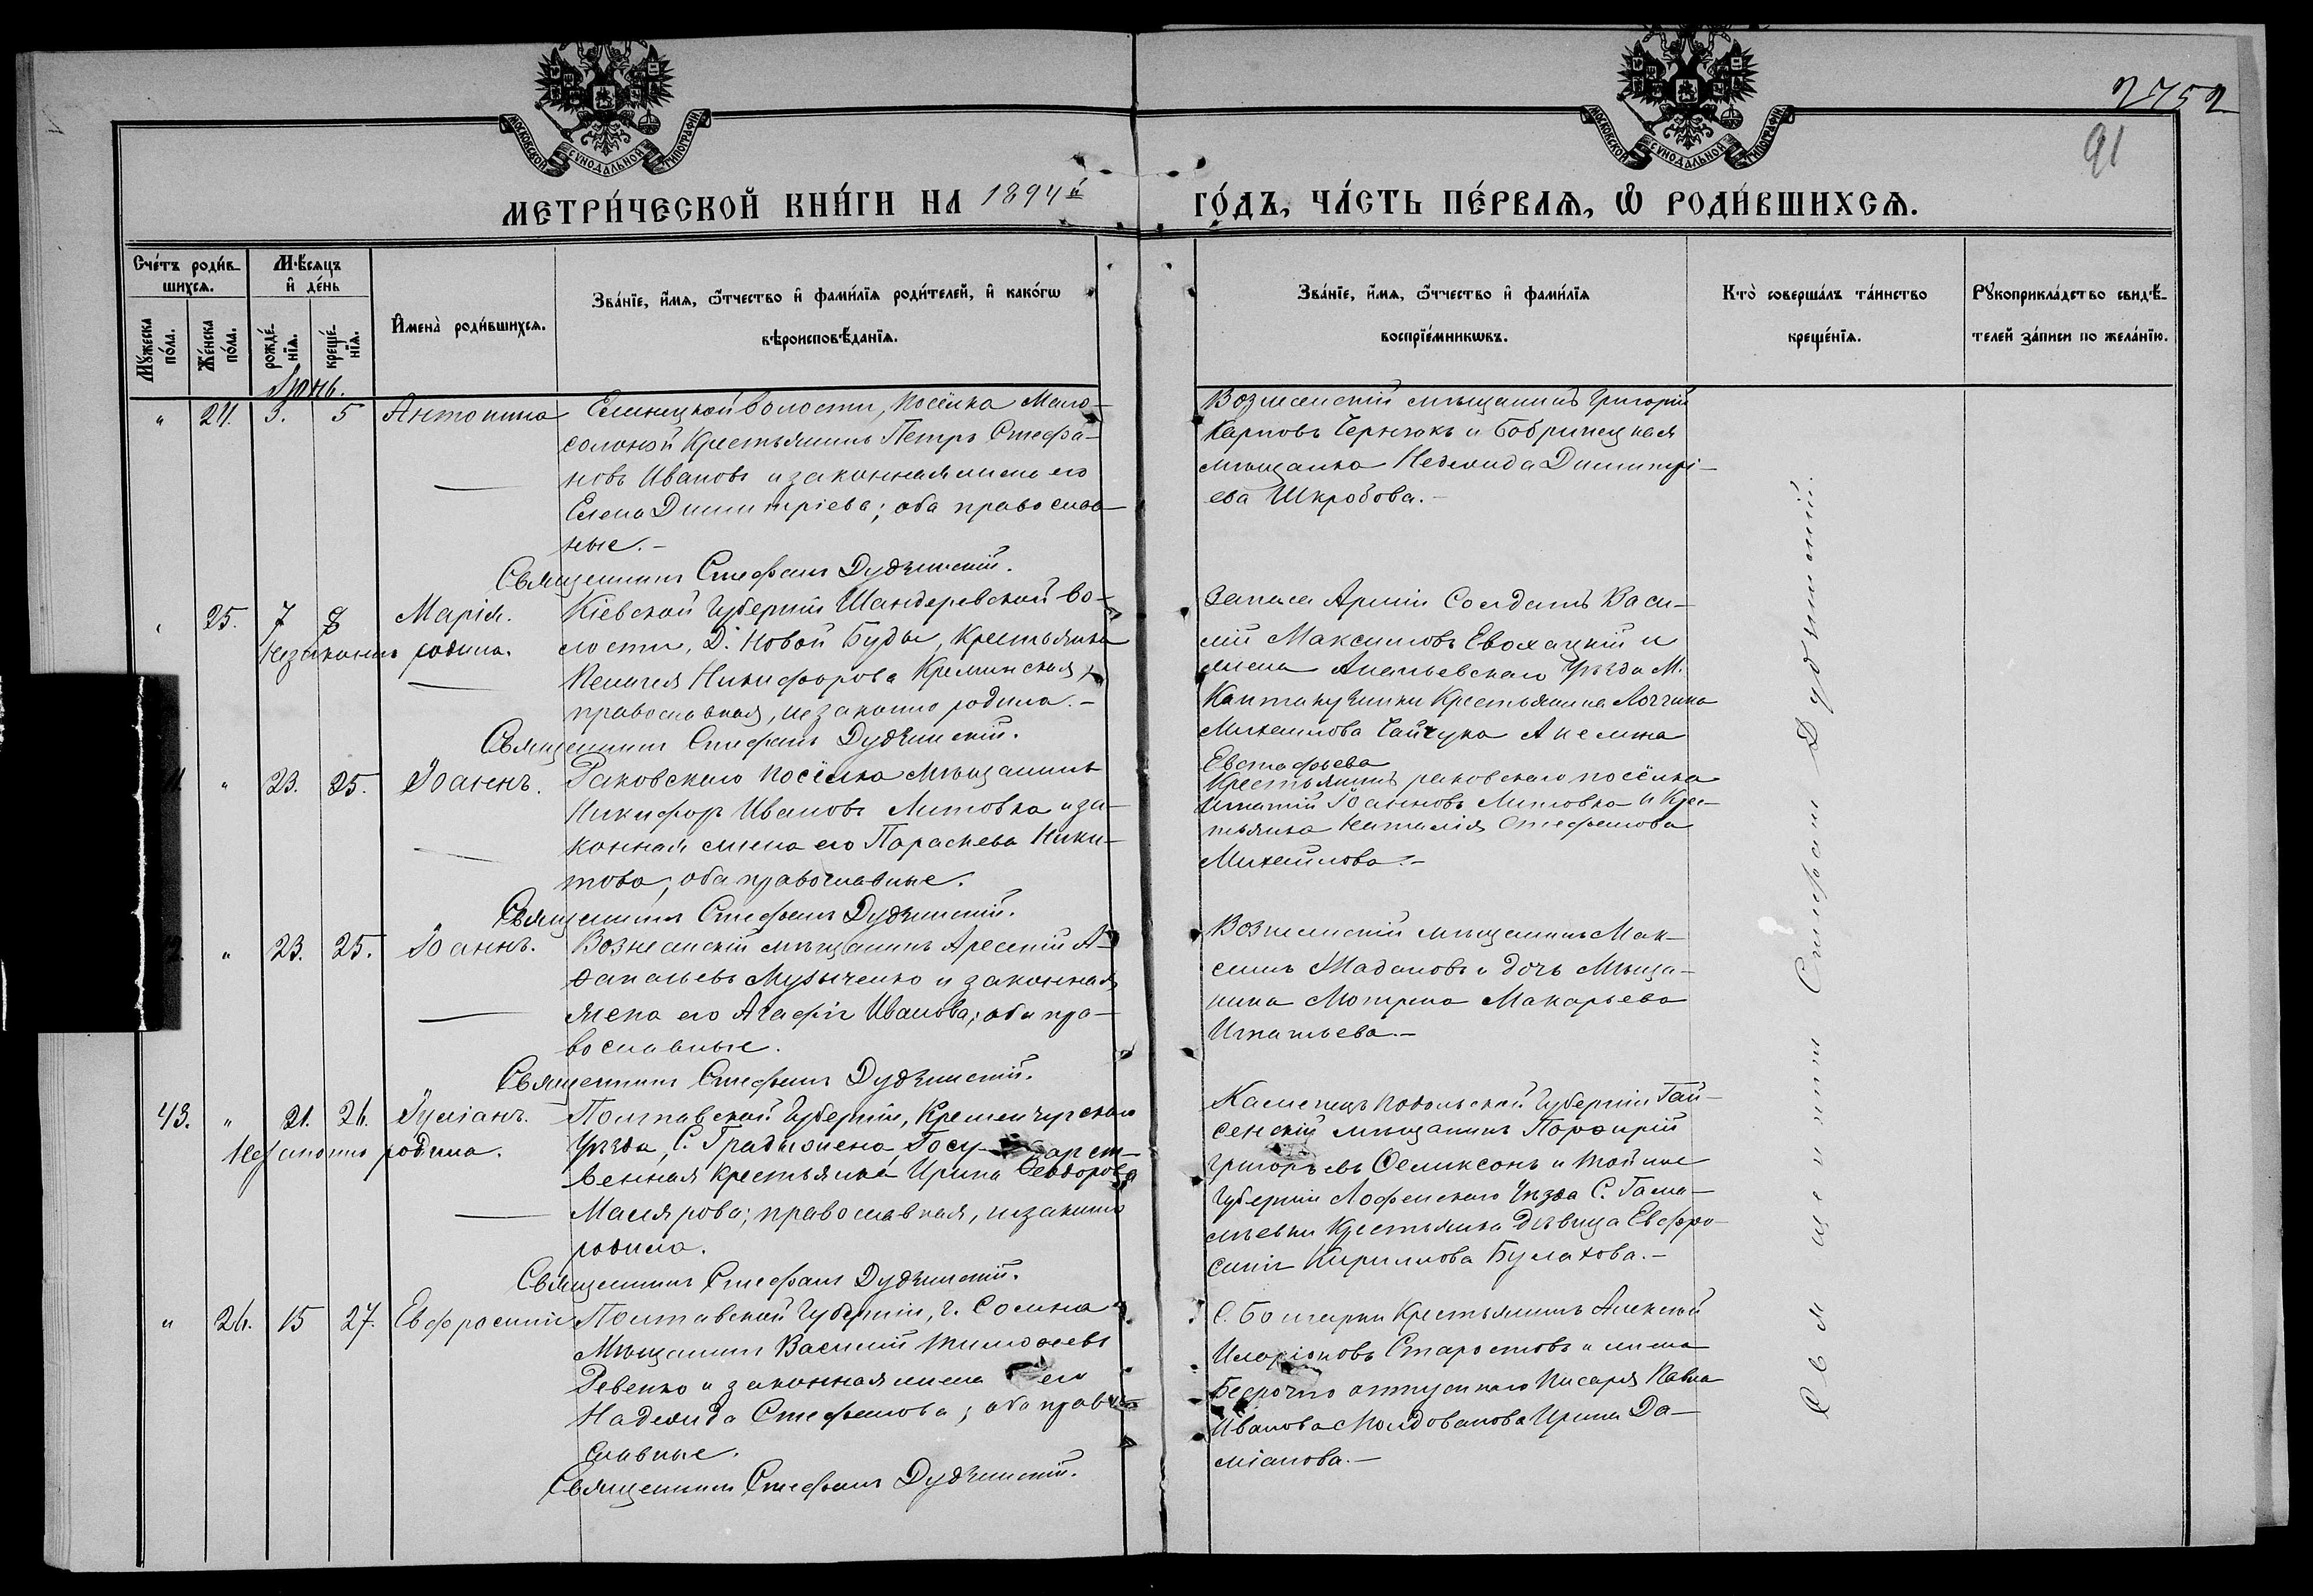 2752
91
МОСКОВСКОЙ СѴНОДАЛЬНОЙ ТИПОГРАФІИ
МОСКОВСКОЙ СѴНОДАЛЬНОЙ ТИПОГРАФІИ
МЕТРИ́ЧЕСКОЙ КНИ́ГИ НА 1894й ГО́ДЪ, ЧА́СТЬ ПЕ́РВАѦ, Ѽ РОДИ́ВШИХСѦ.
Сче́тъ роди́в-
шихсѧ.
Мꙋ́жеска по́ла.
Же́нска по́ла.
Мѣ́сѧцъ и҆ де́нь
рожде́-нїѧ.
креще́-нїѧ.
И҆мена̀ роди́вшихсѧ.
Зва́нїе, и҆́мѧ, ѻ҆́тчество и҆ фами́лїѧ роди́телей, и҆ како́гѡ
вѣроисповѣ́данїѧ.
Зва́нїе, и҆́мѧ, ѻ҆́тчество и҆ фами́лїѧ
воспрїе́мникѡвъ.
Кто̀ соверша́лъ та́инство
креще́нїѧ.
Рꙋкоприкла́дство свидѣ́-
телей за́писи по жела́нїю.
Іюнь.
" 24. 3. 5 Антонина Еланецкой волости, посёлка Мало-
солоной Крестьянинъ Петръ Стефа-
новъ Ивановъ и законная жена его
Елена Димитріева; оба православ-
ные.-
Священникъ Стефанъ Дудзинскій.
Вознесенскій мѣщанинъ Григорій
Карповъ Чернюкъ и Бобринецкая
мѣщанка Надежда Димитрі-
ева Шкробова.-
" 25. 7 8 Марія.
незаконно родила.
Кіевской Губерніи Шандеревской во-
лости, Д. Новой Буды, Крестьянка
Пелагея Никифорова Креминская,
православная, незаконно родила.-
Священникъ Стефанъ Дудзинскій.
Запаса Арміи Солдатъ Васи-
лій Максимовъ Евохацкій и
жена Ананьевскаго Уѣзда М.
Кантакузинки Крестьянина Логгина
Михаилова Чайчука Акелина
Евстафьева
" 23. 25. Іоаннъ. Раковскаго посёлка мѣщанинъ
Никифоръ Ивановъ Литовка и за-
конная жена его Параскева Ники-
това, оба православные.
Священникъ Стефанъ Дудзинскій.
Крестьянинъ раковскаго посёлка
Игнатій Іоанновъ Литовка и Крес-
тьянка Наталія Стефанова
Михаилова.-
" 23. 25. Іоаннъ. Вознесенскій мѣщанинъ Арсеній А-
ѳанасьевъ Музыченко и законная
жена его Агафія Иванова; оба пра-
вославные.
Священникъ Стефанъ Дудзинскій.
Вознесенскій мѣщанинъ Мак-
симъ Жадановъ и дочь Мѣща-
нина Мотрена Макарьева
Игнатьева.-
43. " 21. 26. Іуліанъ.
Незаконно родила.
Полтавской Губерніи, Кременчугскаго
Уѣзда, С. Градижска, Госу-дарст-
венная крестьянка Ирина Ѳеодорова
Малярова; православная, незаконно
родила.
Священникъ Стефанъ Дудзинскій.
Каменецъ Подольской Губерніи Гай-
сенскій мѣщанинъ Порфирій
Григорьевъ Феликсонъ и той же
Губерніи Уѣзда С.
Крестьянка дѣвица Евфро-
синія Кириллова Булахова.-
" 26. 15 27. Евфросинія Полтавской Губерніи,
Мѣщанинъ Василій Тимоѳеевъ
Ревенко и законная жена его
Надежда Стефанова; оба право-
славные.
Священникъ Стефанъ Дудзинскій.
С. Болгарки Крестьянинъ Алексій
Иларіоновъ Старостовъ и жена
Безсрочно отпускного Писаря Павла
Иванова Молдованова Ирина Да-
міанова.-
Священникъ Стефанъ Дудзинскій.